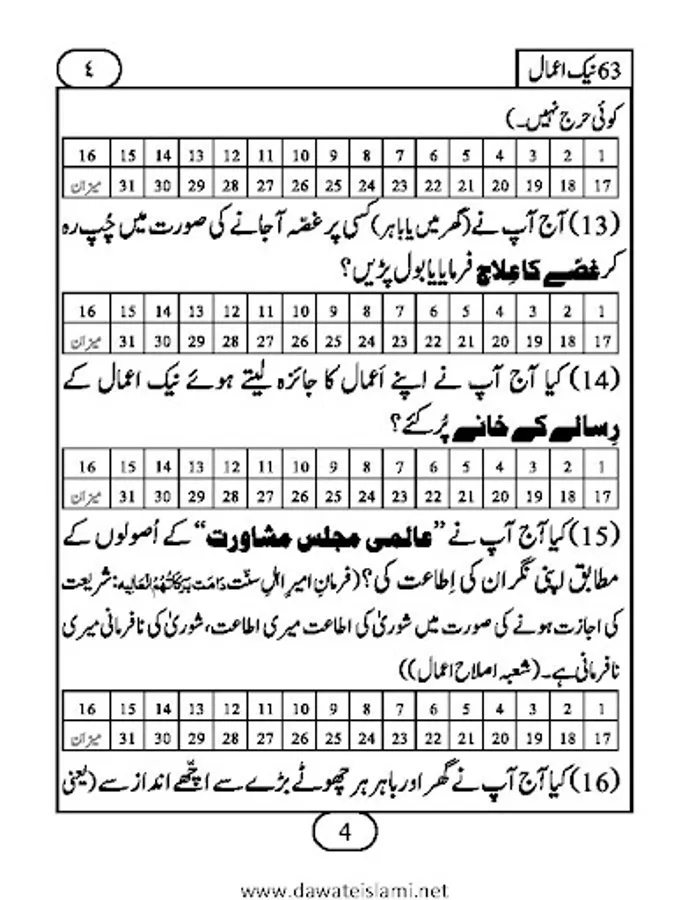 63 نیک اعمال
٤
کوئی حرج نہیں۔)
1 2 3 4 5 6 7 8 9 10 11 12 13 14 15 16
17 18 19 20 21 22 23 24 25 26 27 28 29 30 31 میزان
(13) آج آپ نے (گھر میں یا باہر) کسی پر غصّہ آجانے کی صورت میں چُپ رہ
کر غصّے کا عِلاج فرمایا یا بول پڑیں؟
1 2 3 4 5 6 7 8 9 10 11 12 13 14 15 16
17 18 19 20 21 22 23 24 25 26 27 28 29 30 31 میزان
(14) کیا آج آپ نے اپنے اَعمال کا جائزہ لیتے ہوئے نیک اعمال کے
رِسالے کے خانے پُر کئے؟
1 2 3 4 5 6 7 8 9 10 11 12 13 14 15 16
17 18 19 20 21 22 23 24 25 26 27 28 29 30 31 میزان
(15) کیا آج آپ نے ”عالمی مجلس مشاورت“ کے اُصولوں کے
مطابق اپنی نگران کی اِطاعت کی؟ (فرمانِ امیرِ اہلِ سنّت دَامَت بَرَکاتُہُمُ الْعَالِیہ: شریعت
کی اجازت ہونے کی صورت میں شوریٰ کی اطاعت میری اطاعت، شوریٰ کی نافرمانی میری
نافرمانی ہے۔ (شعبہ اصلاح اعمال))
1 2 3 4 5 6 7 8 9 10 11 12 13 14 15 16
17 18 19 20 21 22 23 24 25 26 27 28 29 30 31 میزان
(16) کیا آج آپ نے گھر اور باہر ہر چھوٹے بڑے سے اچّھے انداز سے (یعنی
4
www.dawateislami.net